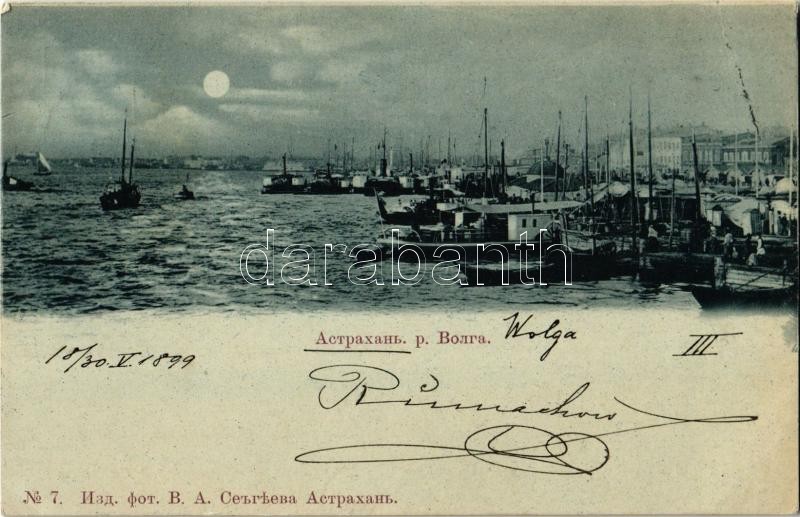 darabanth
Астрахань. р. Волга. Wolga
18/30.V.1899
III
№ 7. Изд. фот. В. А. Сеъгѣева Астрахань.